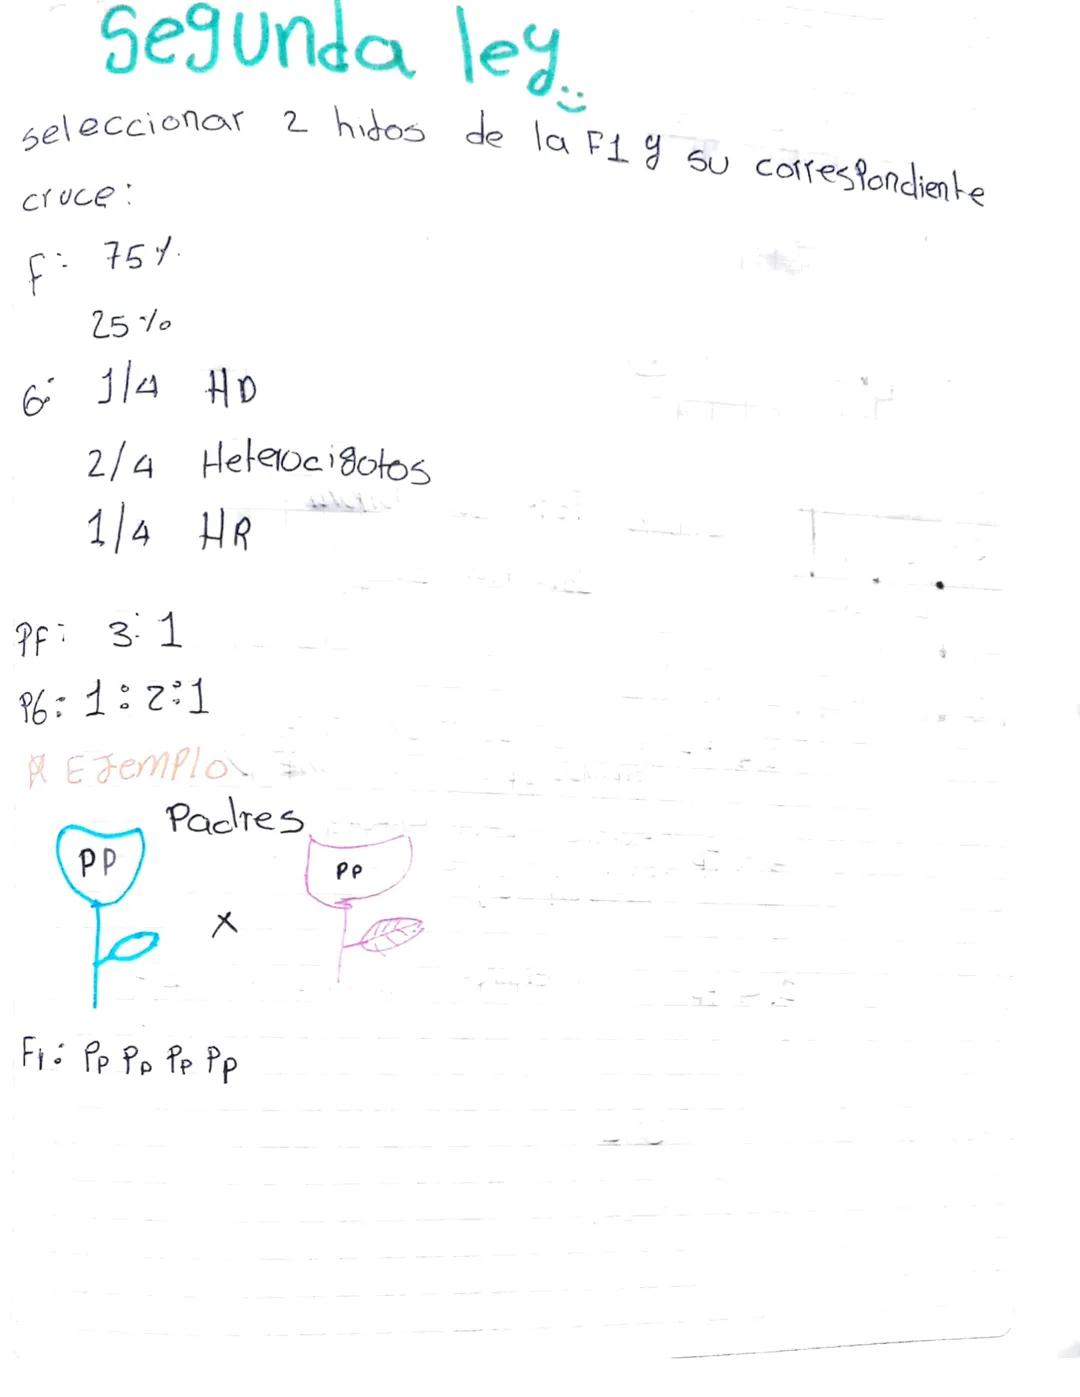 Segunda ley
seleccionar 2 hijos de la F1 y su correspondiente
cruce:
F: 75%
25%
G: 1/4 HD
2/4 Heterocigotos
1/4 HR
PF: 3:1
PG: 1:2:1
EJEMPlo
Padres
PP
x
PP
F1: Pp Pp Pp Pp